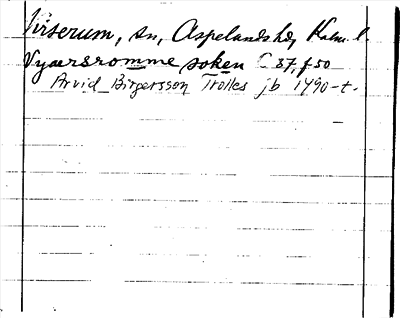 Virserum, sn, Aspelands hd, Kalm. l.
Vyærsromme soken C 37, f 50
Arvid Birgersson Trolles jb 1490-t.